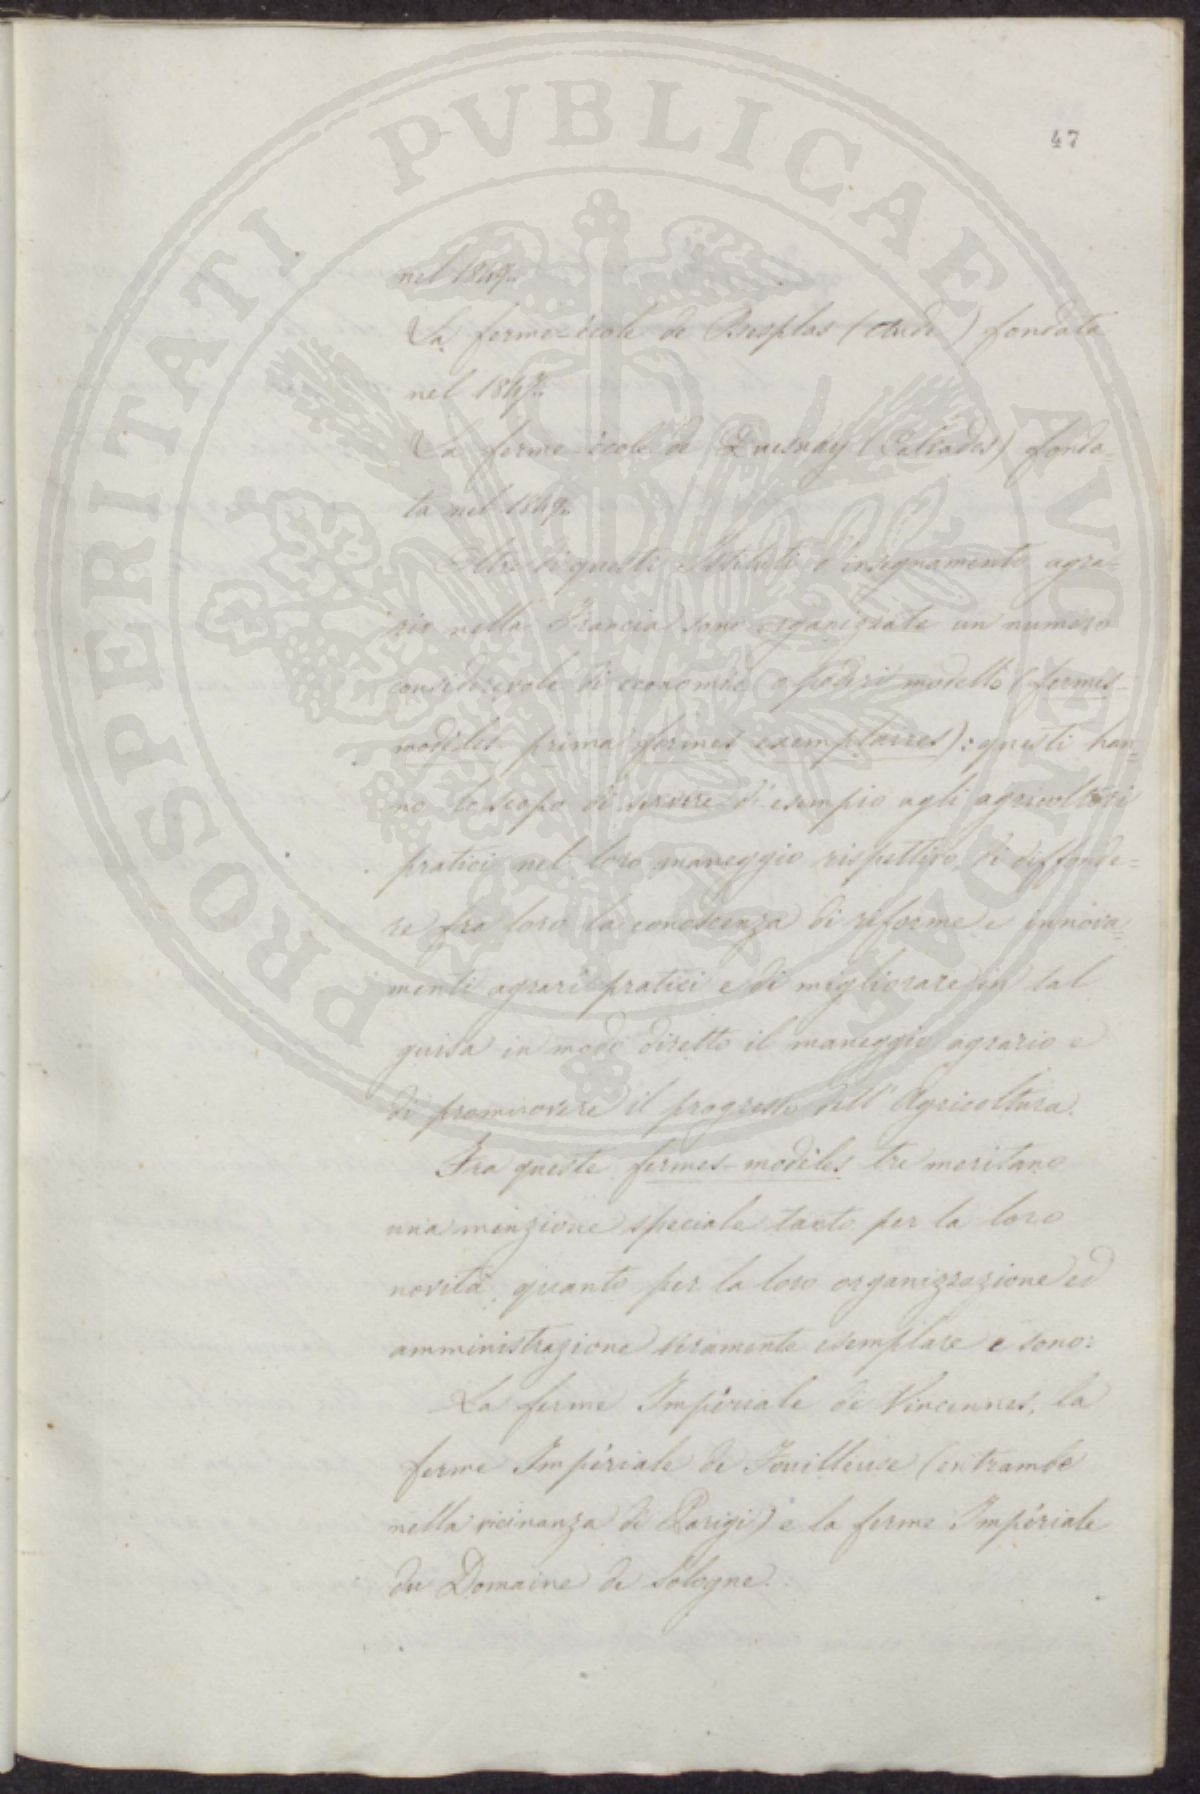 47
nel 1849.
La ferme-école de Besplas (Aude) fondata
nel 1847.
La ferme-école de Quesnay (Calvados) fonda=
ta nel 1849.
Oltre di questi Istituti d'insegnamento agra=
rio nella Francia sono organizzate un numero
considerevole di economie o poderi modello (fermes-
modèles prima fermes exemplaires): questi han=
no lo scopo di servire d'esempio agli agricoltori
pratici nel loro maneggio rispettivo, di diffonde=
re fra loro la conoscenza di riforme e innova=
menti agrari pratici e di migliorare in tal
guisa in modo diretto il maneggio agrario e
di promuovere il progresso dell'Agricoltura.
Fra queste fermes-modèles tre meritano
una menzione speciale tanto per la loro
novità, quanto per la loro organizzazione ed
amministrazione veramente esemplare e sono:
La ferme Impériale de Vincennes, la
ferme Impériale de Fouilleuse (entrambe
nella vicinanza di Parigi) e la ferme Impériale
du Domaine de Sologne.
PROSPERITATI PVBLICAE AVGENDAE